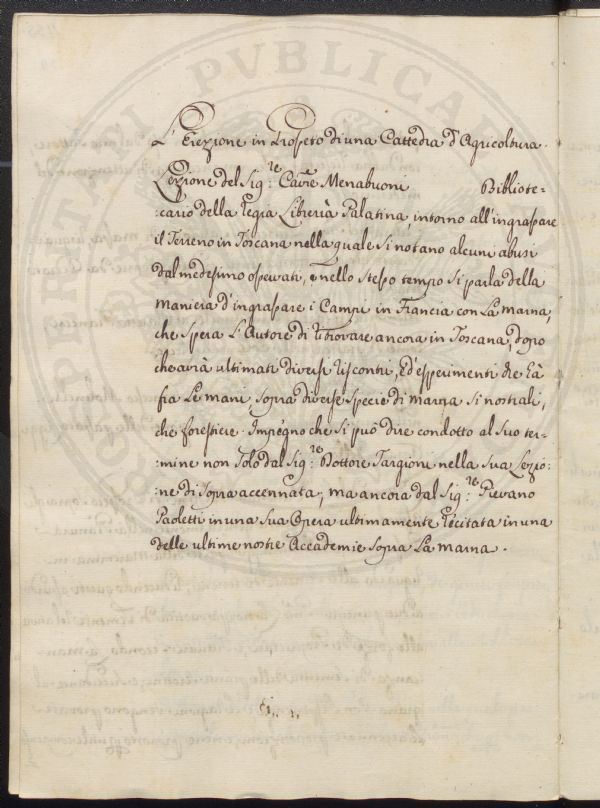 L'Erezione in Prospeto di una Cattedra d'Agricoltura.
Lezione del Sig:re Cav:re Menabuoni Bibliote=
:cario della Regia Libreria Palatina, intorno all'ingrassare
il Terreno in Toscana nella quale si notano alcuni abusi
dal medesimo osservati, e nello stesso tempo si parla della
maniera d'ingrassare i Campi in Francia con La marna,
che spera L'Autore di ritrovare ancora in Toscana, dopo
che avrà ultimati diversi riscontri, ed'esperimenti che hà
fra Le mani, sopra diverse specie di marna si nostrali,
che forestiere. Impegno che si può dire condotto al suo ter=
:mine non solo dal Sig:re Dottore Targioni nella sua Lezio:
:ne di sopra accennata, ma ancora dal Sig:re Pievano
Paoletti in una sua Opera ultimamente recitata in una
delle ultime nostre Accademie sopra La marna.